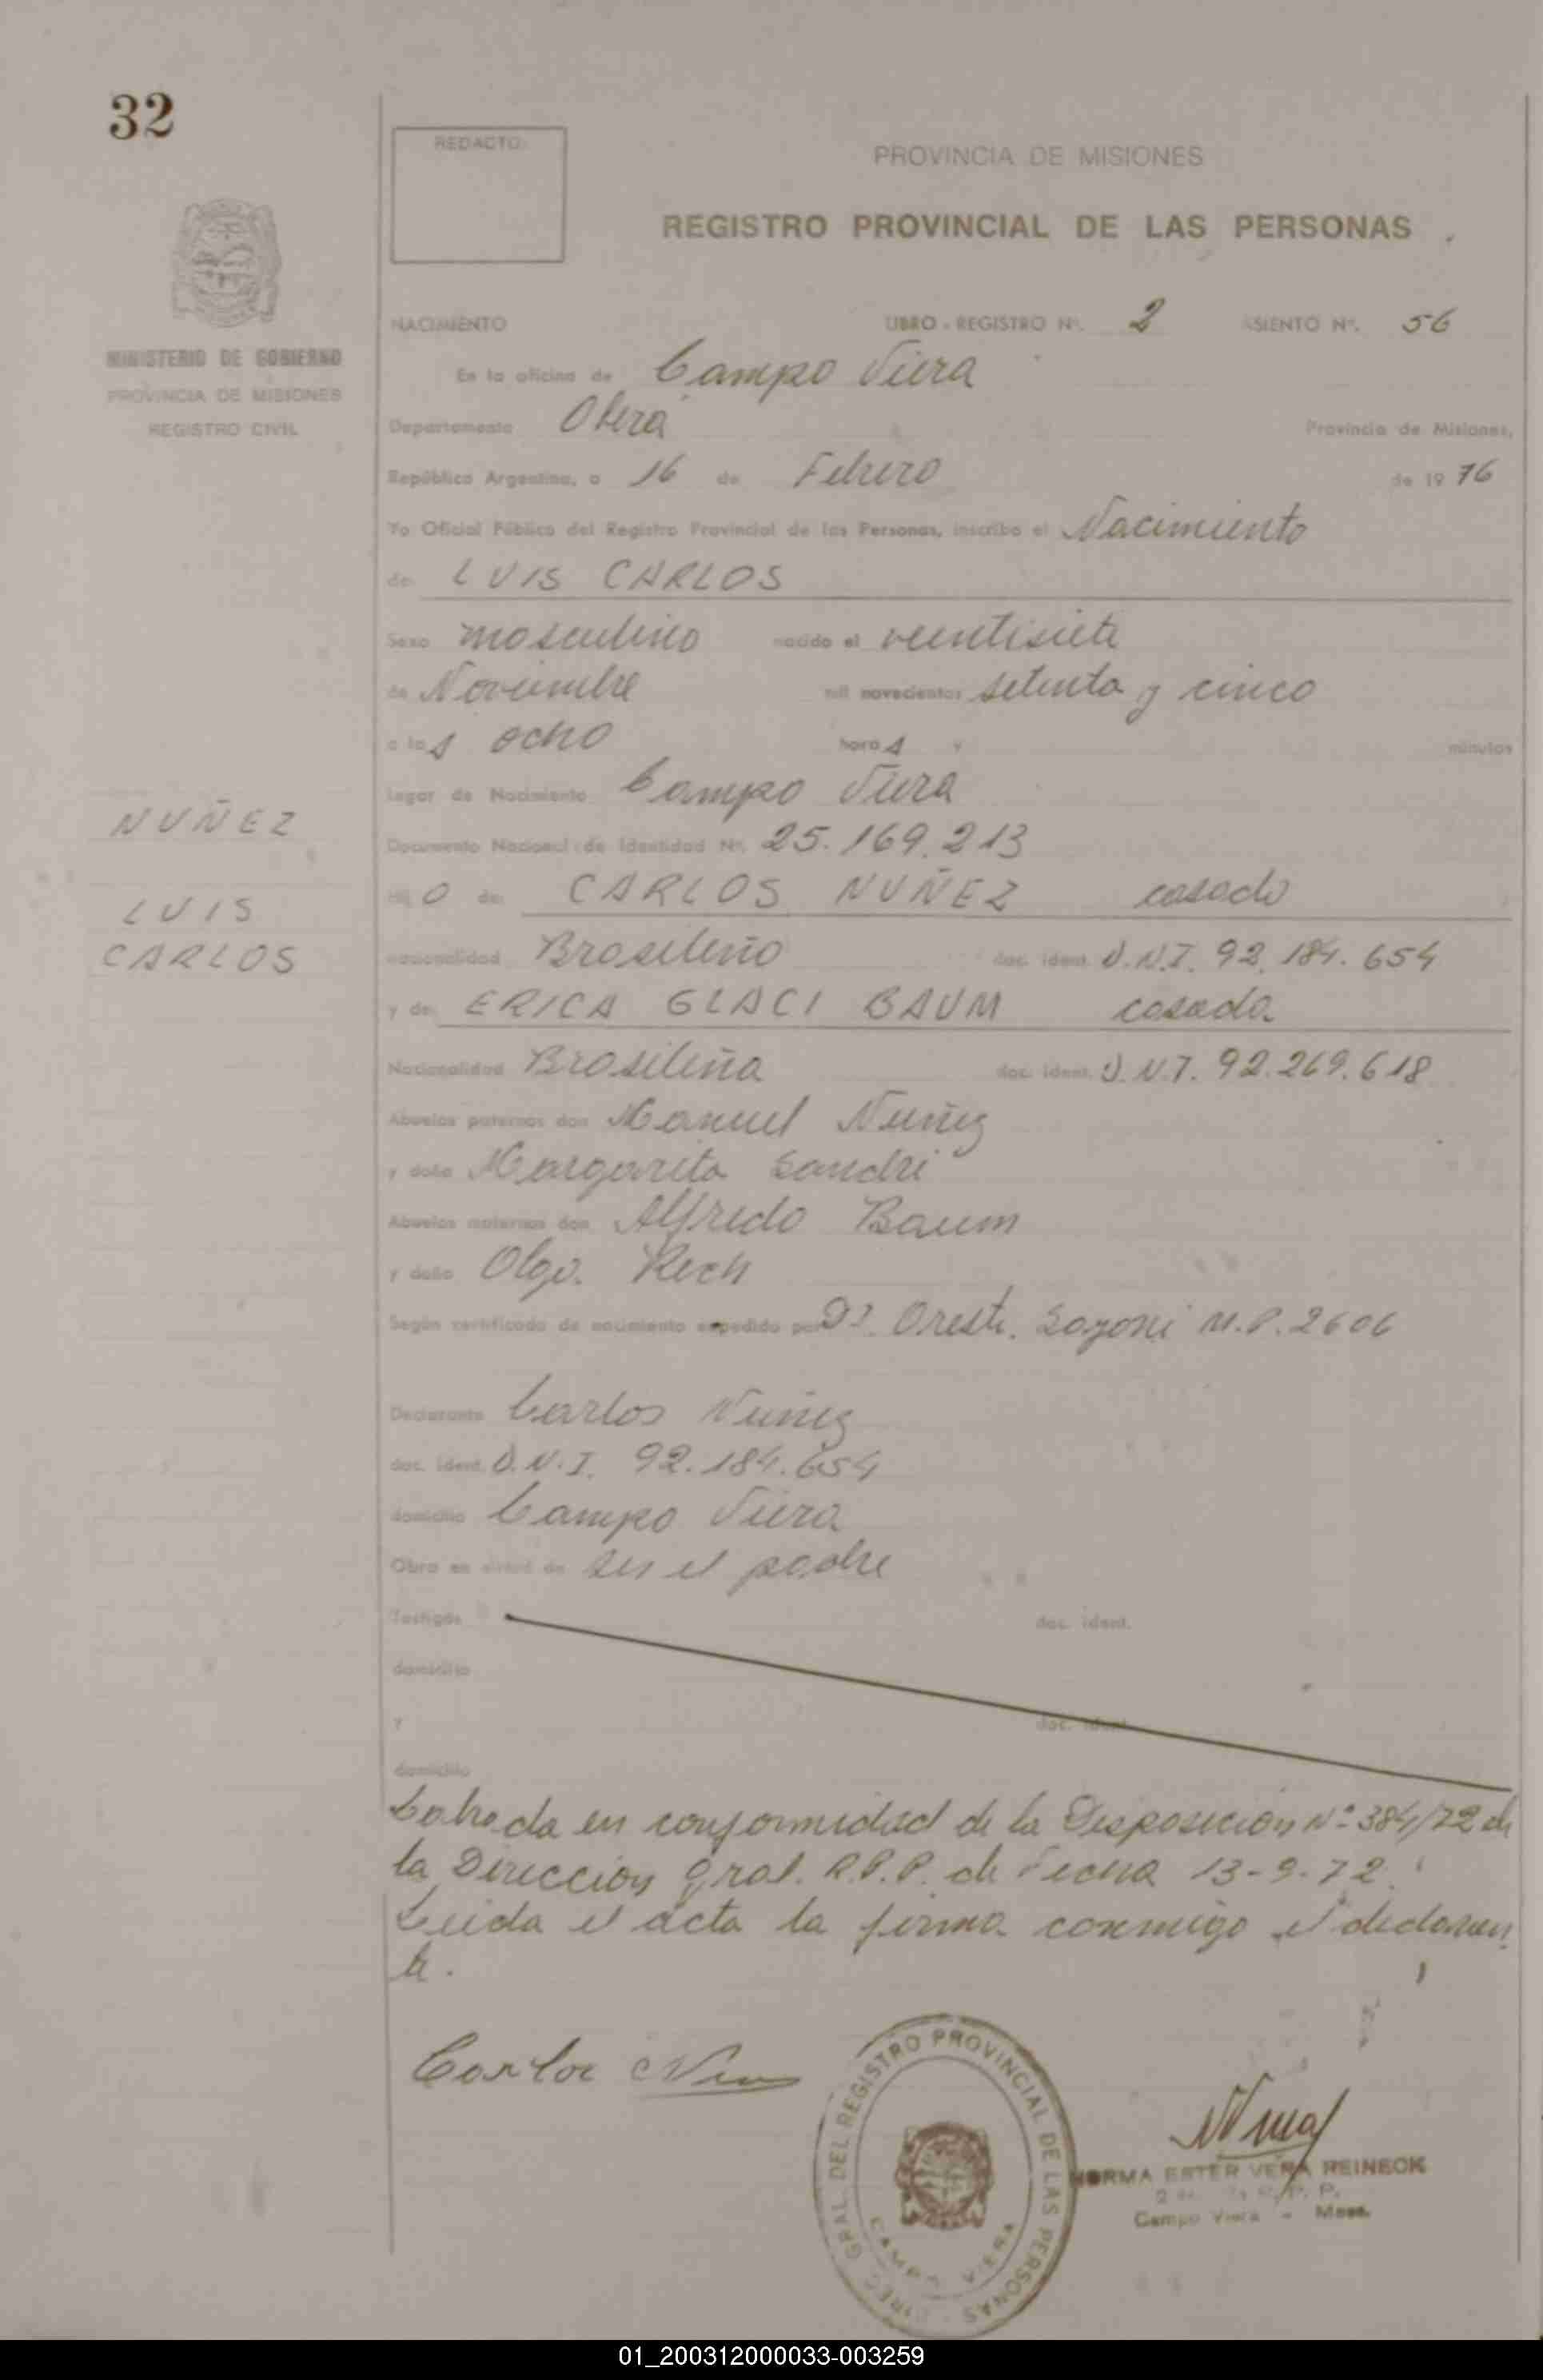 32
REDACTO:
PROVINCIA DE MISIONES
REGISTRO PROVINCIAL DE LAS PERSONAS
MINISTERIO DE GOBIERNO
PROVINCIA DE MISIONES
REGISTRO CIVIL
NACIMIENTO LIBRO - REGISTRO Nº. 2 ASIENTO Nº. 56
En la oficina de Campo Viera
Departamento Obera Provincia de Misiones,
República Argentina, a 16 de Febrero de 19 76
Yo Oficial Público del Registro Provincial de las Personas, inscribo el Nacimiento
de LUIS CARLOS
Sexo masculino nacido el veintisiete
de Noviembre mil novecientos setenta y cinco
a las ocho horas y minutos
Lugar de Nacimiento Campo Viera
NUÑEZ
LUIS
CARLOS
Documento Nacional de Identidad Nº. 25.169.213
hijo de CARLOS NUÑEZ casado
nacionalidad Brasileño doc. ident. D.N.I. 92.184.654
y de ERICA GLACI BAUM casada
Nacionalidad Brasileña doc. ident. D.N.I. 92.269.618
Abuelos paternos don Manuel Nuñez
y doña Margarita Sandri
Abuelos maternos don Alfredo Baum
y doña Olga Rech
Según certificado de nacimiento expedido por Dr. Oreste M.P. 2606
Declarante Carlos Nuñez
doc. ident. D.N.I. 92.184.654
domicilio Campo Viera
Obra en virtud de ser el padre
Testigos doc. ident.
domicilio
y doc. ident.
domicilio
Labrada en conformidad de la Disposición Nº 384/72 de
la Dirección Gral. R.P.P. de Fecha 13-9-72.
Leida el acta la firma conmigo el declaran
te.
Carlos
DIREC. GRAL. DEL REGISTRO PROVINCIAL DE LAS PERSONAS
CAMPO VIERA
NORMA ESTER VERA REINECK
Campo Viera - Mnes.
01_200312000033-003259